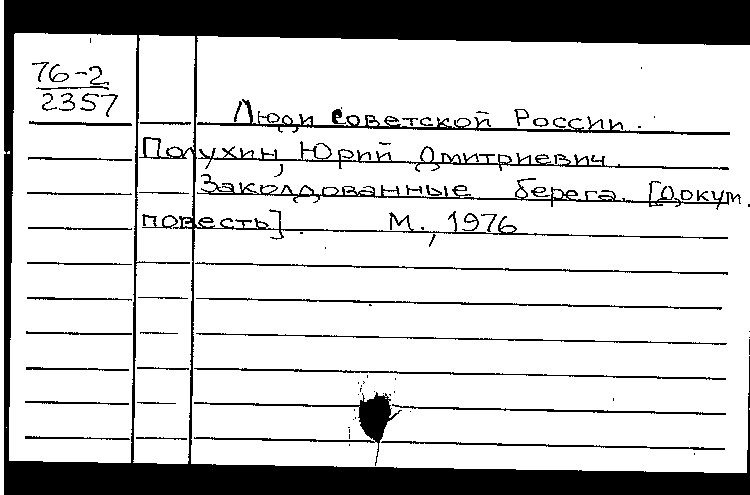 76-2
2357
Люди Советской России.
Полухин, Юрий Дмитриевич.
Заколдованные берега. [Докум.
повесть]. М., 1976